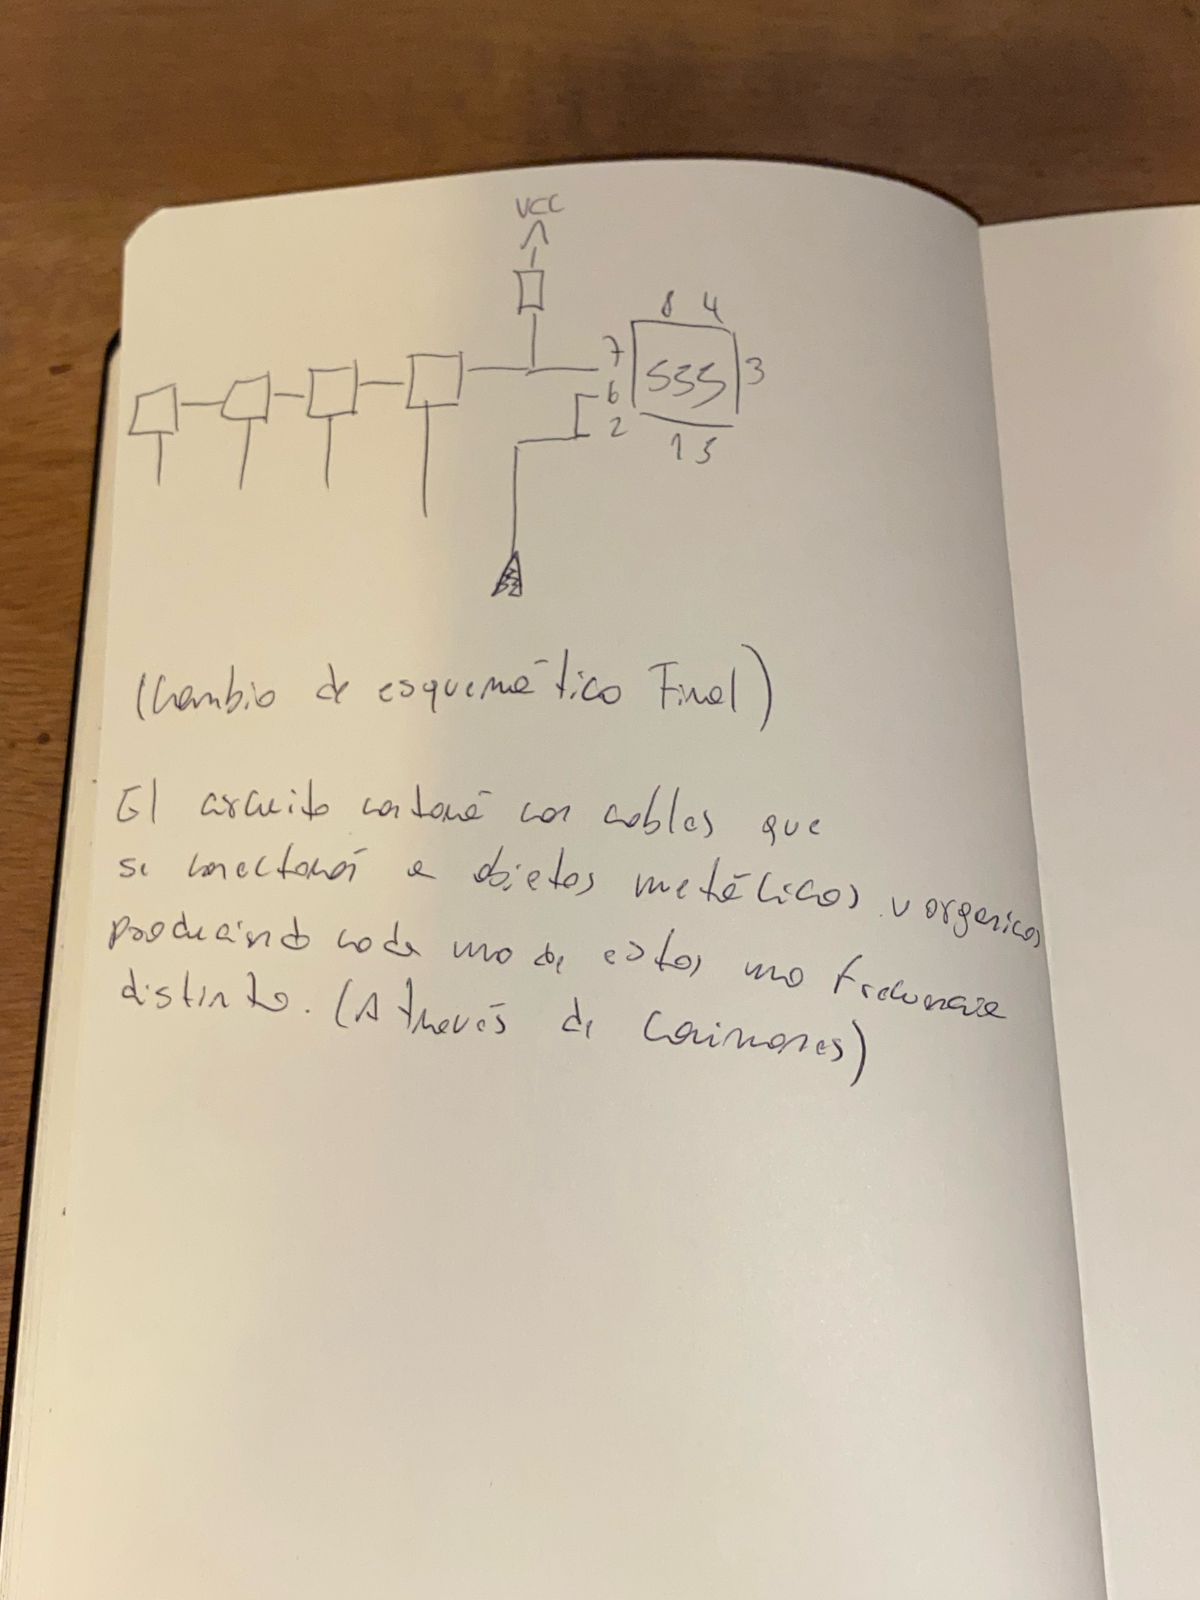 VCC
8 4
7
555
3
6
2
1 5
(Cambio de esquemático Final)
El circuito contará con cables que
se conectarán a objetos metálicos u organicos
produciendo cada uno de estos una frecuencia
distinta. (A través de caimanes)